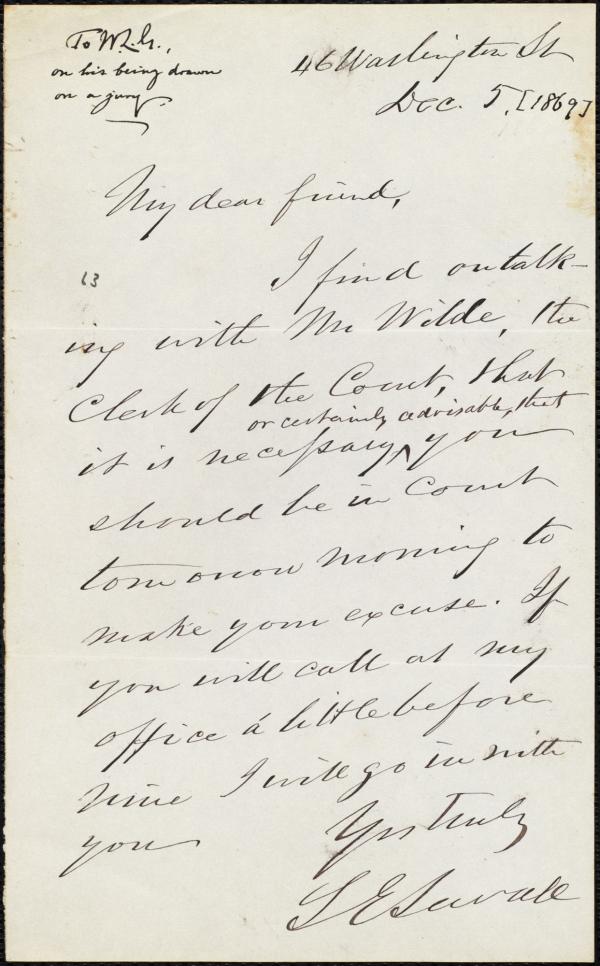 To W.L.G.,
on his being drawn
on a jury.
46 Washington St
Dec. 5, [1869]
My dear friend,
13
I find on talk-
ing with Mr Wilde, the
Clerk of the Court, that
or certainly advisable, that
it is necessary ^ you
should be in Court
tomorrow morning to
make your excuse. If
you will call at my
office a little before
nine I will go in with
you
Yrs truly
S E Sewall